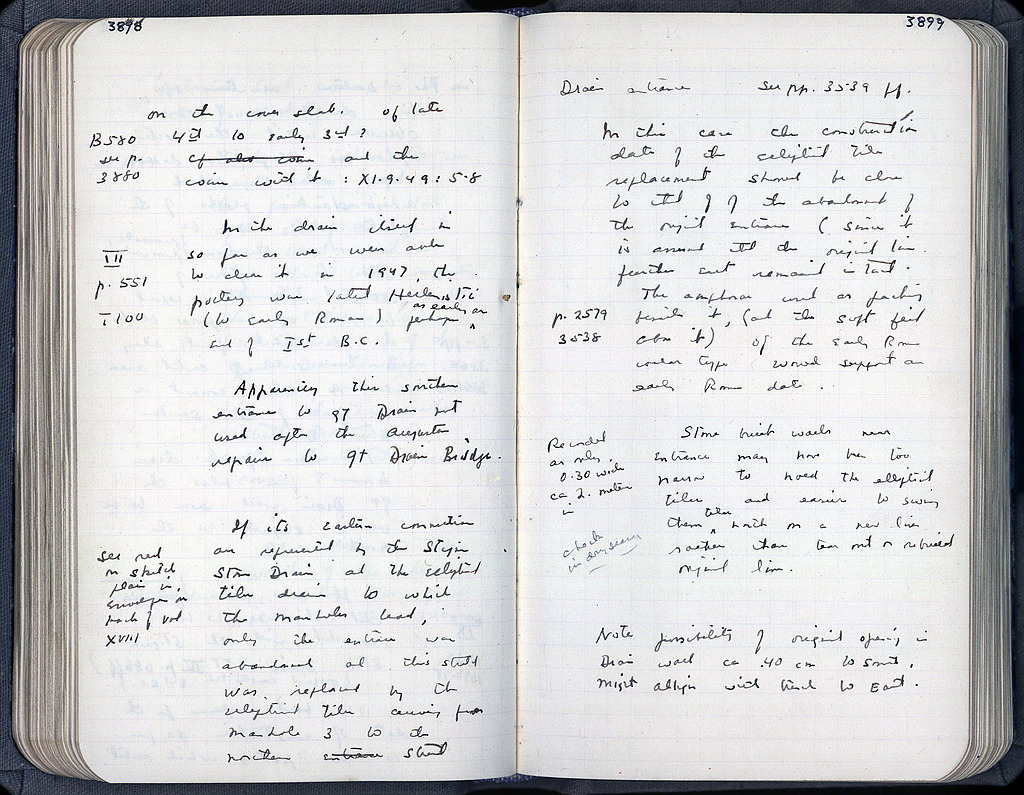 3898
on the cover slab. of late
B580 4th to early 3rd ?
see p. cf also coin and the
3880 coin with it : XI-9-49 : 5-8
In the drain itself in
III so far as we were able
p. 551 to clear it in 1947, the
pottery was latest Hellenistic
T100 (to early Roman) perhaps as early as
end of Ist B.C.
Apparently this southern
entrance to gt Drain not
used after the Augustan
repair to gt Drain Bridge.
If its eastern connection
see red are represented by the
on sketch Stone Drain, and the elliptical
plan in tile drain to which
envelope in the manholes lead,
back of vol
XVIII only the entrance was
abandoned and this
was replaced by the
elliptical tiles curving from
Manhole 3 to the
northern entrance
3899
Drain entrance See pp. 3539 ff.
In this case the construction
date of the elliptical tile
replacement should be close
to that of the abandonment of
the original entrance (since it
is assumed that the original line
further east remained intact.
The amphoras used as packing
p. 2579 beside it, (and the soft fill
3538 above it) of the Early Roman
type would support an
early Roman date.
Recorded Stone built walls near
as only entrance may have been too
0.30 wide narrow to hold the elliptical
ca 2. meters tiles and easier to swing
in them tiles north on a new line
check rather than tear out or rebuild
in original line.
Note possibility of original opening in
Drain wall ca .40 cm to South,
might align with to East.